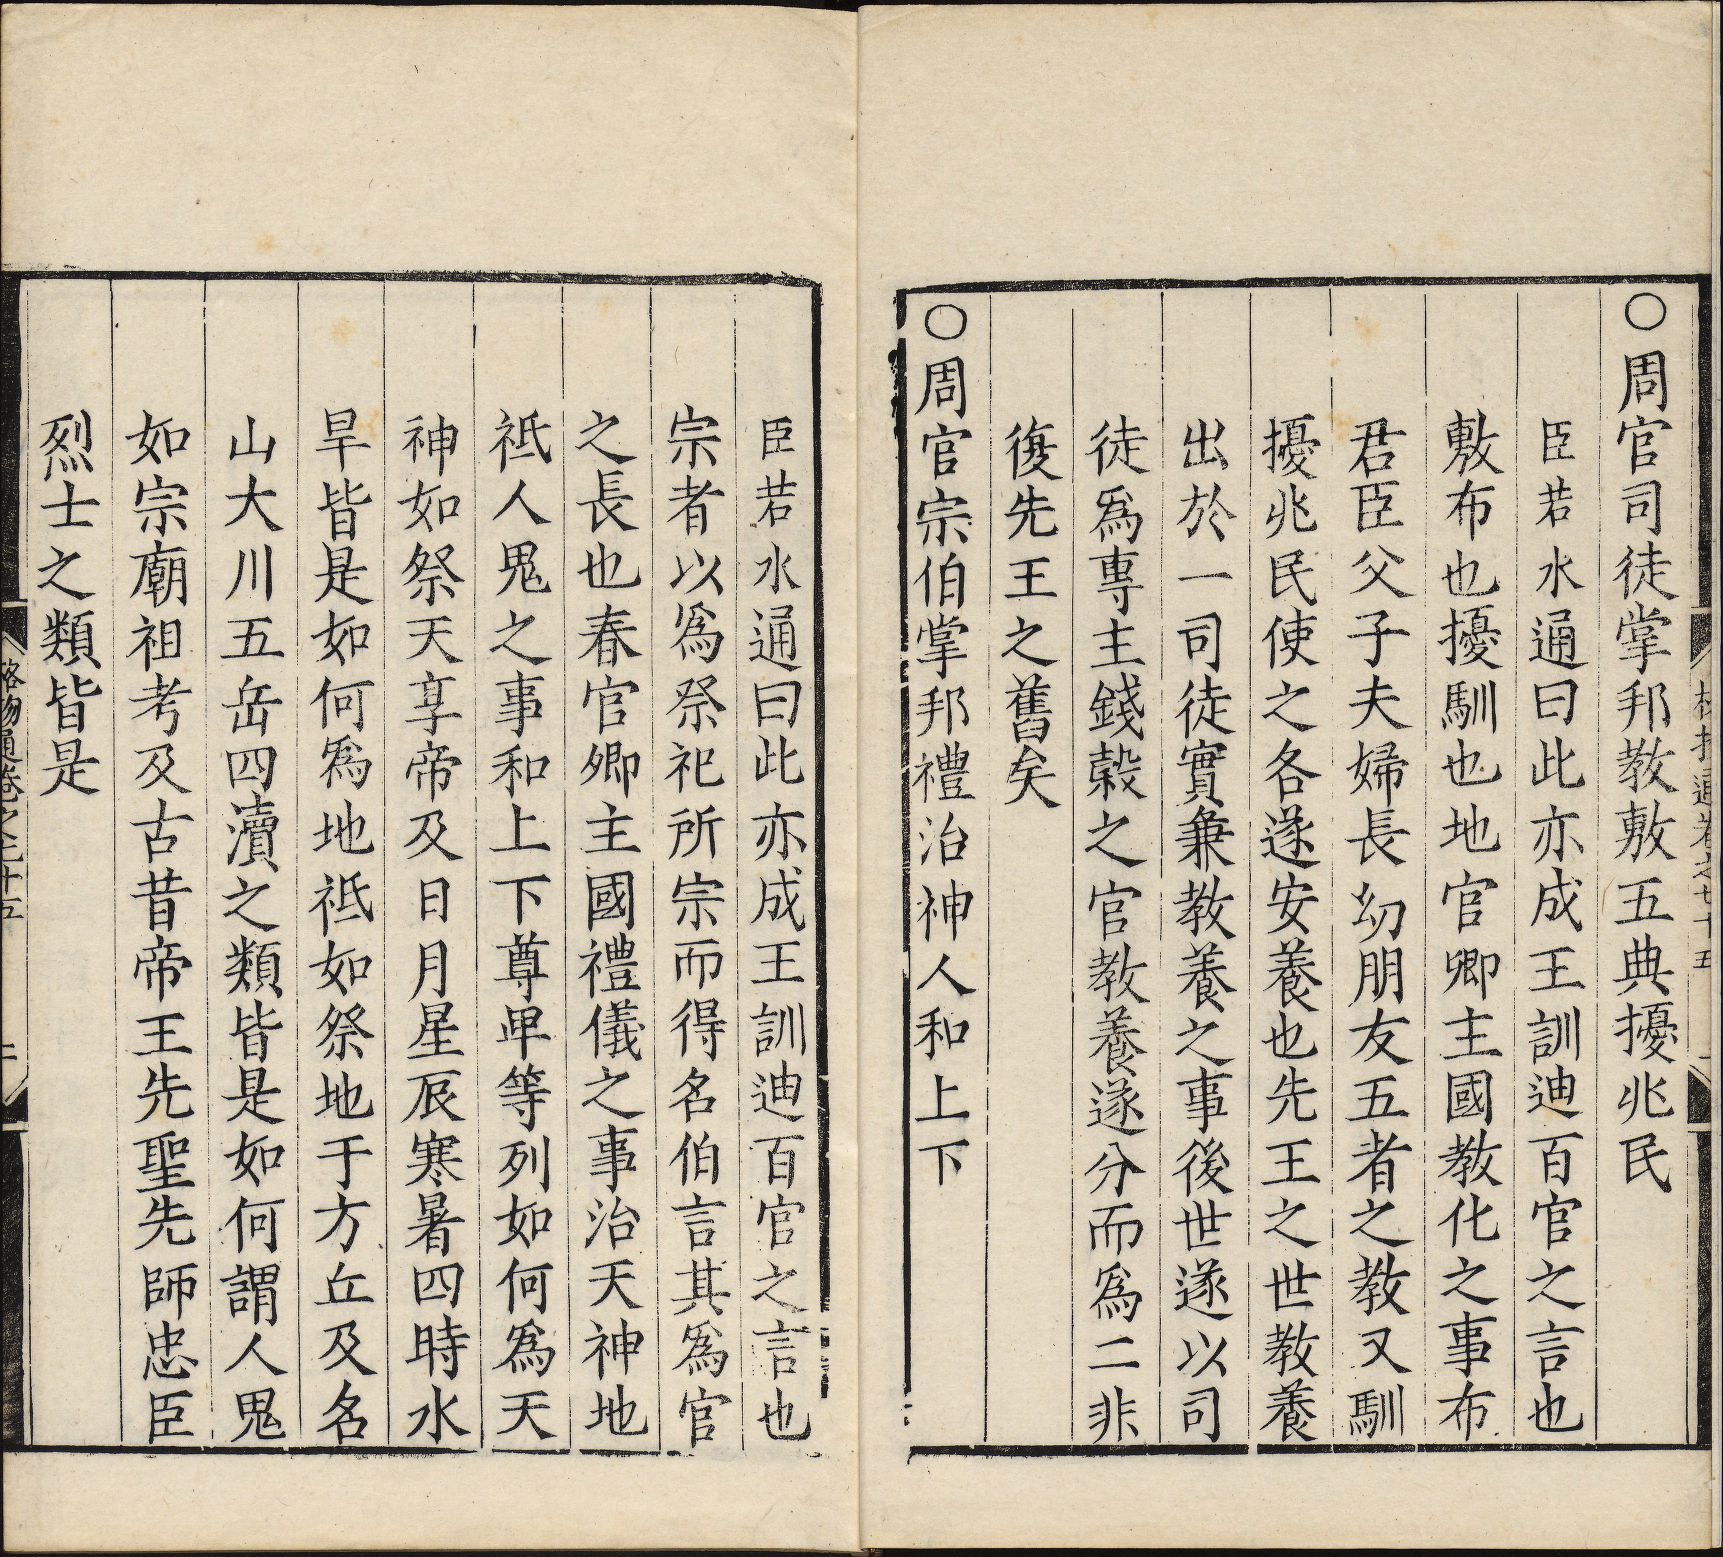 ○周官司徒掌邦教敷五典擾兆民
臣若水通曰此亦成王訓迪百官之言也
敷布也擾馴也地官卿主國教化之事布
君臣父子夫婦長幼朋友五者之教又馴
擾兆民使之各遂安養也先王之世教養
出於一司徒實兼教養之事後世遂以司
徒爲專主錢榖之官教養遂分而爲二非
復先王之舊矣
○周官宗伯掌邦禮治神人和上下
臣若水通曰此亦成王訓迪百官之言也
宗者以爲祭祀所宗而得名伯言其爲官
之長也春官卿主國禮儀之事治天神地
祗人鬼之事和上下尊卑等列如何爲天
神如祭天享帝及日月星辰寒暑四時水
旱皆是如何爲地祗如祭地于方丘及名
山大川五岳四瀆之類皆是如何謂人鬼
如宗廟祖考及古昔帝王先聖先師忠臣
烈士之類皆是